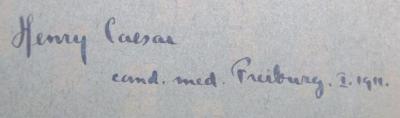 Henry Caesar
cand. med. Freiburg. I. 1911.